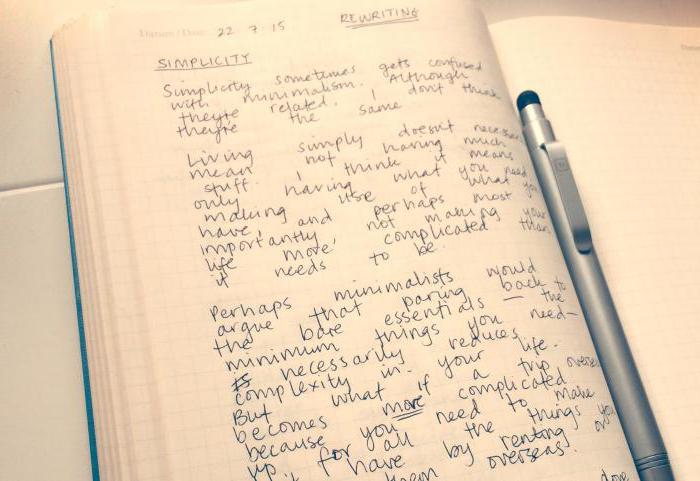 Datum / Date: 22 7 15
REWRITING
SIMPLICITY
Simplicity sometimes gets confused
with minimalism. Although
they're related, I don't think
they're the same
Living simply doesn't
mean not having much
stuff. I think it means
only having what you need
making use of what you
have, and perhaps most
importantly, not making your
life more complicated than
it needs to be.
Perhaps minimalists would
argue that paring back to
the bare essentials — the
minimum things you need—
necessarily reduces
complexity in your life.
But what if a trip overseas
becomes more complicated
because you need to make
up for all the things you
have by renting
them overseas.